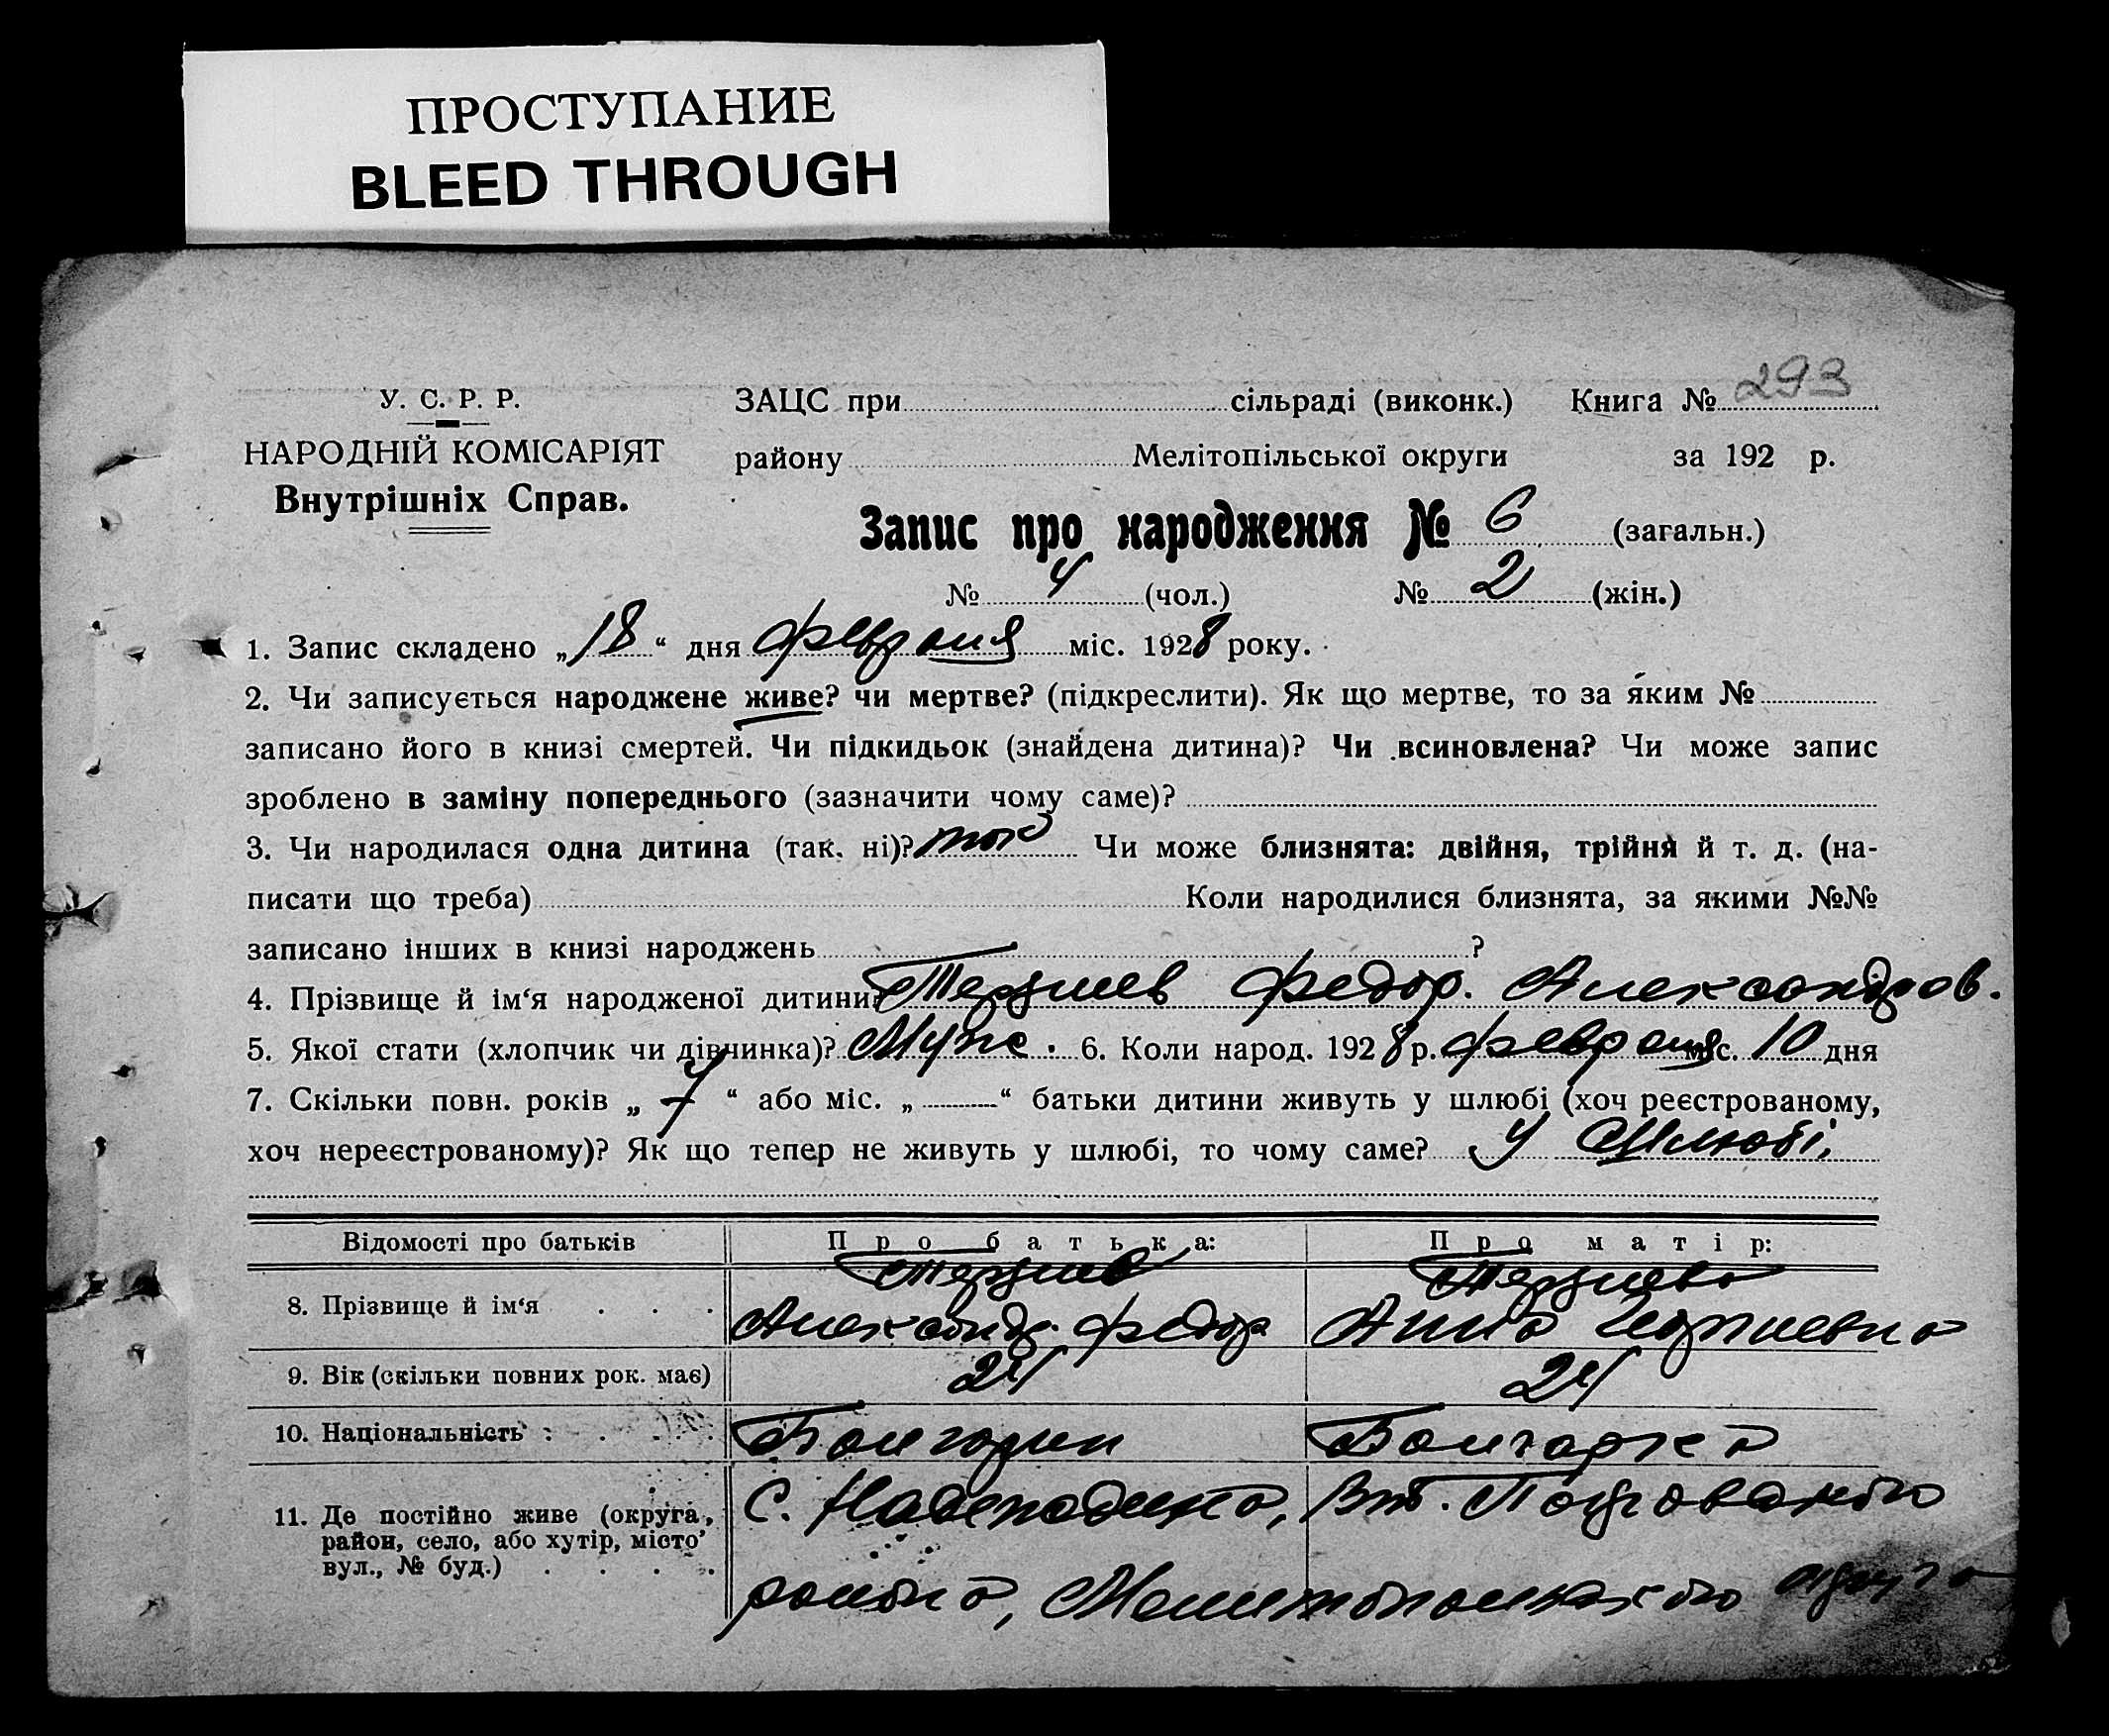 ПРОСТУПАНИЕ
BLEED THROUGH
У. С. Р. Р.
НАРОДНІЙ КОМІСАРІЯТ
Внутрішніх Справ.
ЗАЦС при сільраді (виконк.) Книга № 293
району Мелітопільської округи за 192 р.
Запис про народження № 6 (загальн.)
№ 4 (чол.) № 2 (жін.)
1. Запис складено „18“ дня февраля міс. 1928 року.
2. Чи записується народжене живе? чи мертве? (підкреслити). Як що мертве, то за яким №
записано його в книзі смертей. Чи підкидьок (знайдена дитина)? Чи всиновлена? Чи може запис
зроблено в заміну попереднього (зазначити чому саме)?
3. Чи народилася одна дитина (так, ні)? так Чи може близнята: двійня, трійня й т. д. (на-
писати що треба) Коли народилися близнята, за якими №№
записано інших в книзі народжень ?
4. Прізвище й ім‘я народженої дитини: Терзиев Федор. Александров.
5. Якої стати (хлопчик чи дівчинка)? Муж. 6. Коли народ. 1928 р. февраля міс. 10 дня
7. Скільки повн. років „ 7 “ або міс. „ “ батьки дитини живуть у шлюбі (хоч реєстрованому,
хоч нереєстрованому)? Як що тепер не живуть у шлюбі, то чому саме? У Шлюбі,
Відомості про батьків Про батька: Про матір:
Терзиев Терзиева
8. Прізвище й ім‘я . . . Александр. Федор Анна
9. Вік (скільки повних рок. має) 24 24
10. Національність : . . . . Болгарин Болгарка
11. Де постійно живе (округа, район, село, або хутір, місто вул., № буд.) . . . . С.
района, Мелитопольского округа